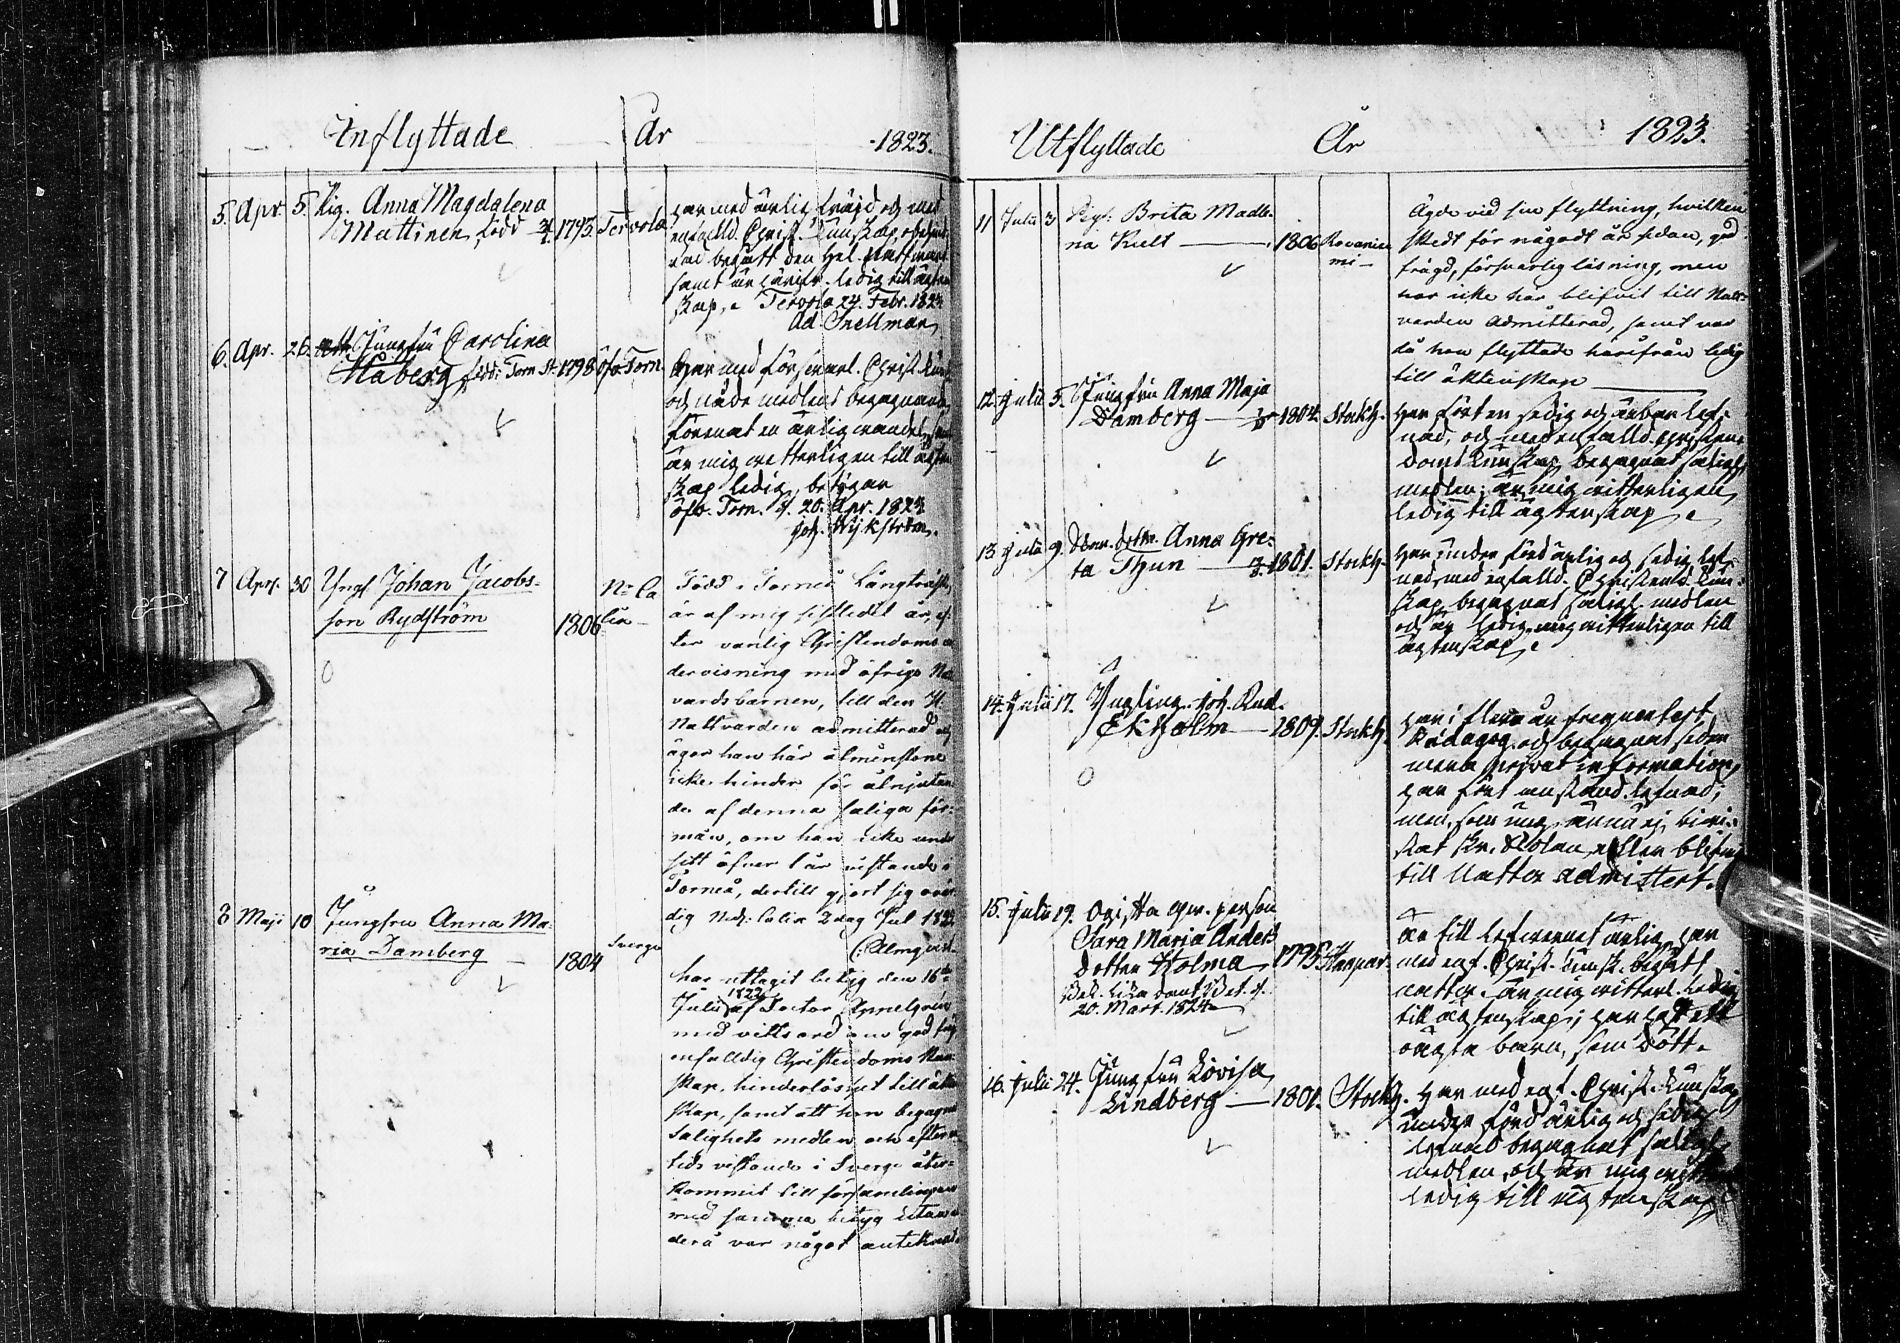 Inflyttade År 1823.
5. Apr. 5. Pig. Anna Magdalena
Mattinen, född 1795. Tervola
har med ärlig frägd och med
enfalld. Christ. Kunskap
begått den Hel. Nattward
samt är ledig till äkten
skap, Tervola 24. Febr. 1823
Ad. Snellman
6. Apr. 26. Jungfru Carolina
Håberg, född i Torn. St. 1798 Öfv. Torn.
Har med försvarl. Christ. Kunsk.
och nåde medlens begagnande,
förenat en ärlig wandel,
är mig vetterligen till ägten
skap ledig, betygar
Öfv. Torn. d. 20. Apr. 1823
Joh. Wijkström.
7 Apr. 30 Yngl. Johan Jacobs-
son Rydström 1806
Född i Torneå Långträsk,
är af mig sistledet år, ef-
ter vanlig Christendoms un
dervisning med öfrige Natt
vardsbarnen, till den H.
Nattvarden admitterad och
äger han här åtminstone
icke hinder för åtnjutan
de af denna saliga för-
mån, om han icke under
sitt öfver 1 år vistande i
Torneå, dertill gjort sig ovär
dig Ned. Calix 2 dag Jul 1822
C. Almquist.
8 Maji 10 Jungfru Anna Ma-
ria Damberg 1804 Sverge
har uttagit betyg den 16de
Julii 1822 af Doctor Appelgren
med vittsord om god frägd
enfalldig Christendoms Kun
skap, hinderlöshet till äkten
skap, samt att hon begagnat
Salighets medlen och efter en
tids vistande i Sverge åter-
kommit till församlingen
med samma betyg utan at
derå var något antecknad.
Utflyttade År 1823.
11 Julii 3 Pig. Brita Madle-
na Kult 1806 Rovanie
mi
Ägde vid sin flyttning, hvilken
skedt för någodt år sedan, god
frägd, försvarlig läsning, men
har icke har blifvit till Natt-
varden admitterad, samt var
då hon flyttade härifrån ledig
till äktenskap
12. Julii 5. Jungfru Anna Maja
Damberg 1804. Stockh.
Har fört en sedig och ärbar lef-
nad, och med enfalld. Christen-
doms kunskap begagnat salighs
medlen; är mig vitterligen
ledig till ägtenskap
13 Julii 9. dotter. Anna Gre-
ta Thun 1801. Stockh.
Har under förd ärlig och sedig lef-
nad, med enfalld. Christend. Kun-
skap begagnat saligh. medlen
och är ledig mig vitterligen till
ägtenskap
14. Julii 17. Yngling. Joh. Rud.
Ekholm 1809. Stockh.
Har i flera år frequenterat
Pædagog. och begagnat sedan
mera privat information,
har fört anständ. lefnad;
men, som ung, ännu ej bevi-
stat Skr. Skolan, eller blifvit
till Nattv. admittert.
15. Julii 19. Ogifta qw. person
Sara Maria Anders
dotter Holma 1795 Haapar.
20. Mart. 1824
Är till lefvernet ärlig, har
med enf. Christ. kunsk. begått
nattv. är mig vitterl. ledig
till ägtenskap; har haft ett
oägta barn, som dött.
16. Julii 24. Jungfru Lovisa
Lindberg 1801. Stockh.
Har med enf. Christ. Kunskap
under förd ärlig och sedig
lefnad begagnat saligh.
medlen, och är mig vitterl.
ledig till ägtenskap